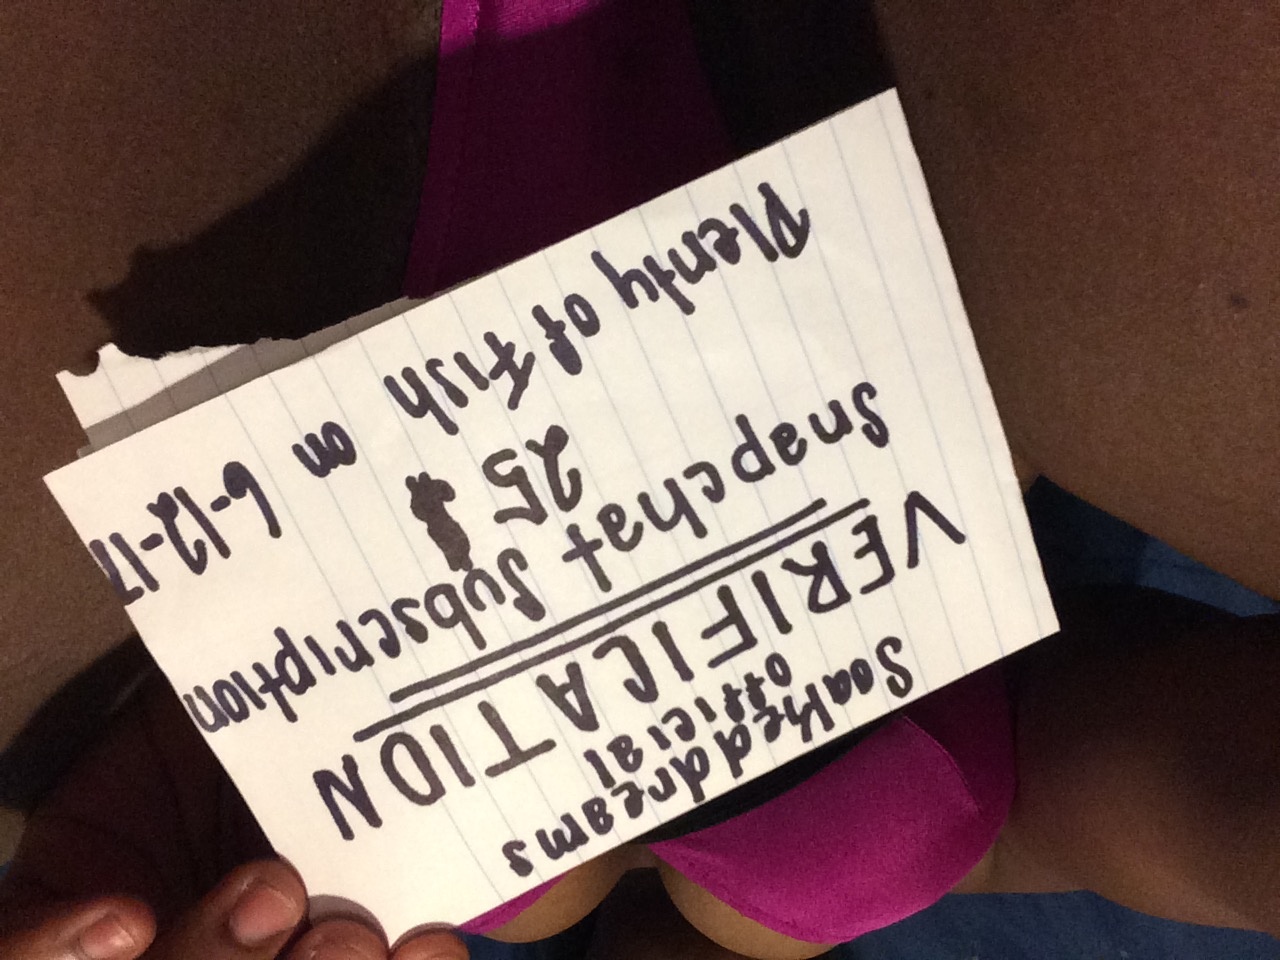 Soakeddreams
official
VERIFICATION
Snapchat Subscription
25
Plenty of fish on 6-12-17